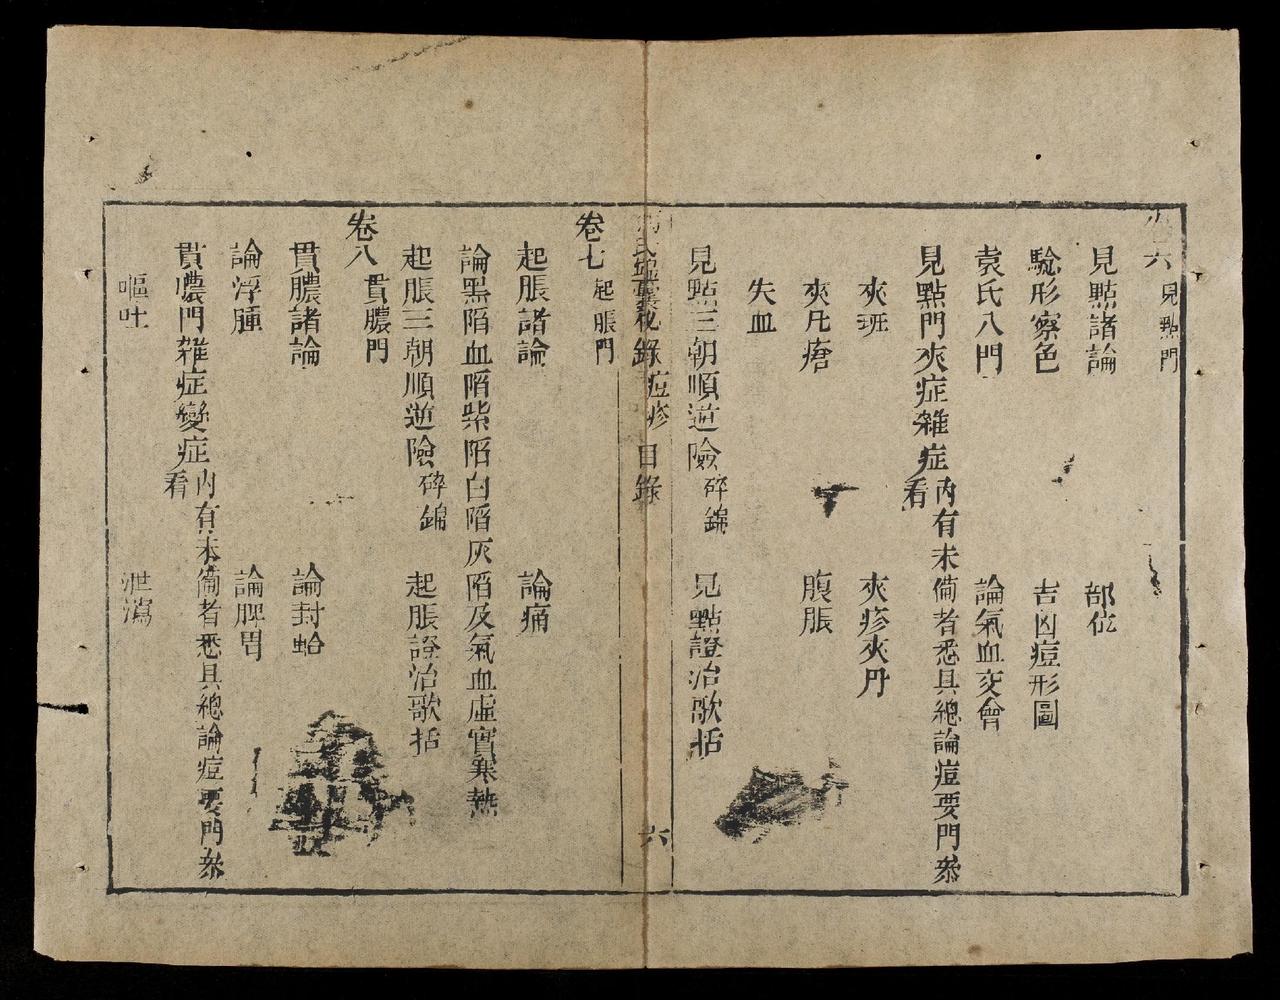 六 見點門
見點諸論 部位
騐形察色 吉凶痘形圖
袁氏八門 論氣血交會
見點門夾症雜症內有未偹者悉具總論痘要門叅看
夾班 夾疹夾丹
夾𤴯瘡 腹脹
失血
見點三朝順逆險碎錦 見點證治歌括
氏錦囊秘錄 痘疹 目錄 六
卷七 起脹門
起脹諸論 論痛
論黑陷血陷紫陷白陷灰陷及氣血虛實寒熱
起脹三朝順逆險碎錦 起脹證治歌括
卷八 貫膿門
貫膿諸論 論封蛤
論浮腫 論脾胃
貫膿門雜症變症內有未偹者悉具總論痘要門叅看
嘔吐 泄瀉